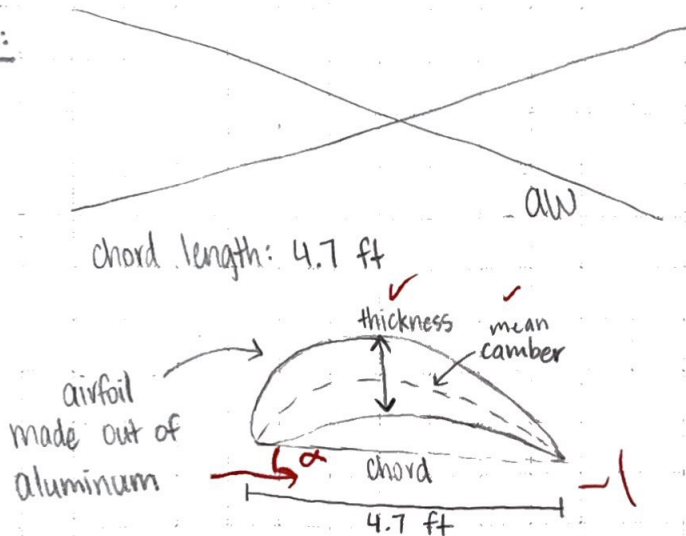 :
aw
chord length: 4.7 ft
thickness
mean
camber
airfoil
made out of
aluminum
α
chord
-1
4.7 ft